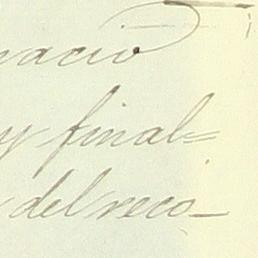 nacio
y final=
del reco_